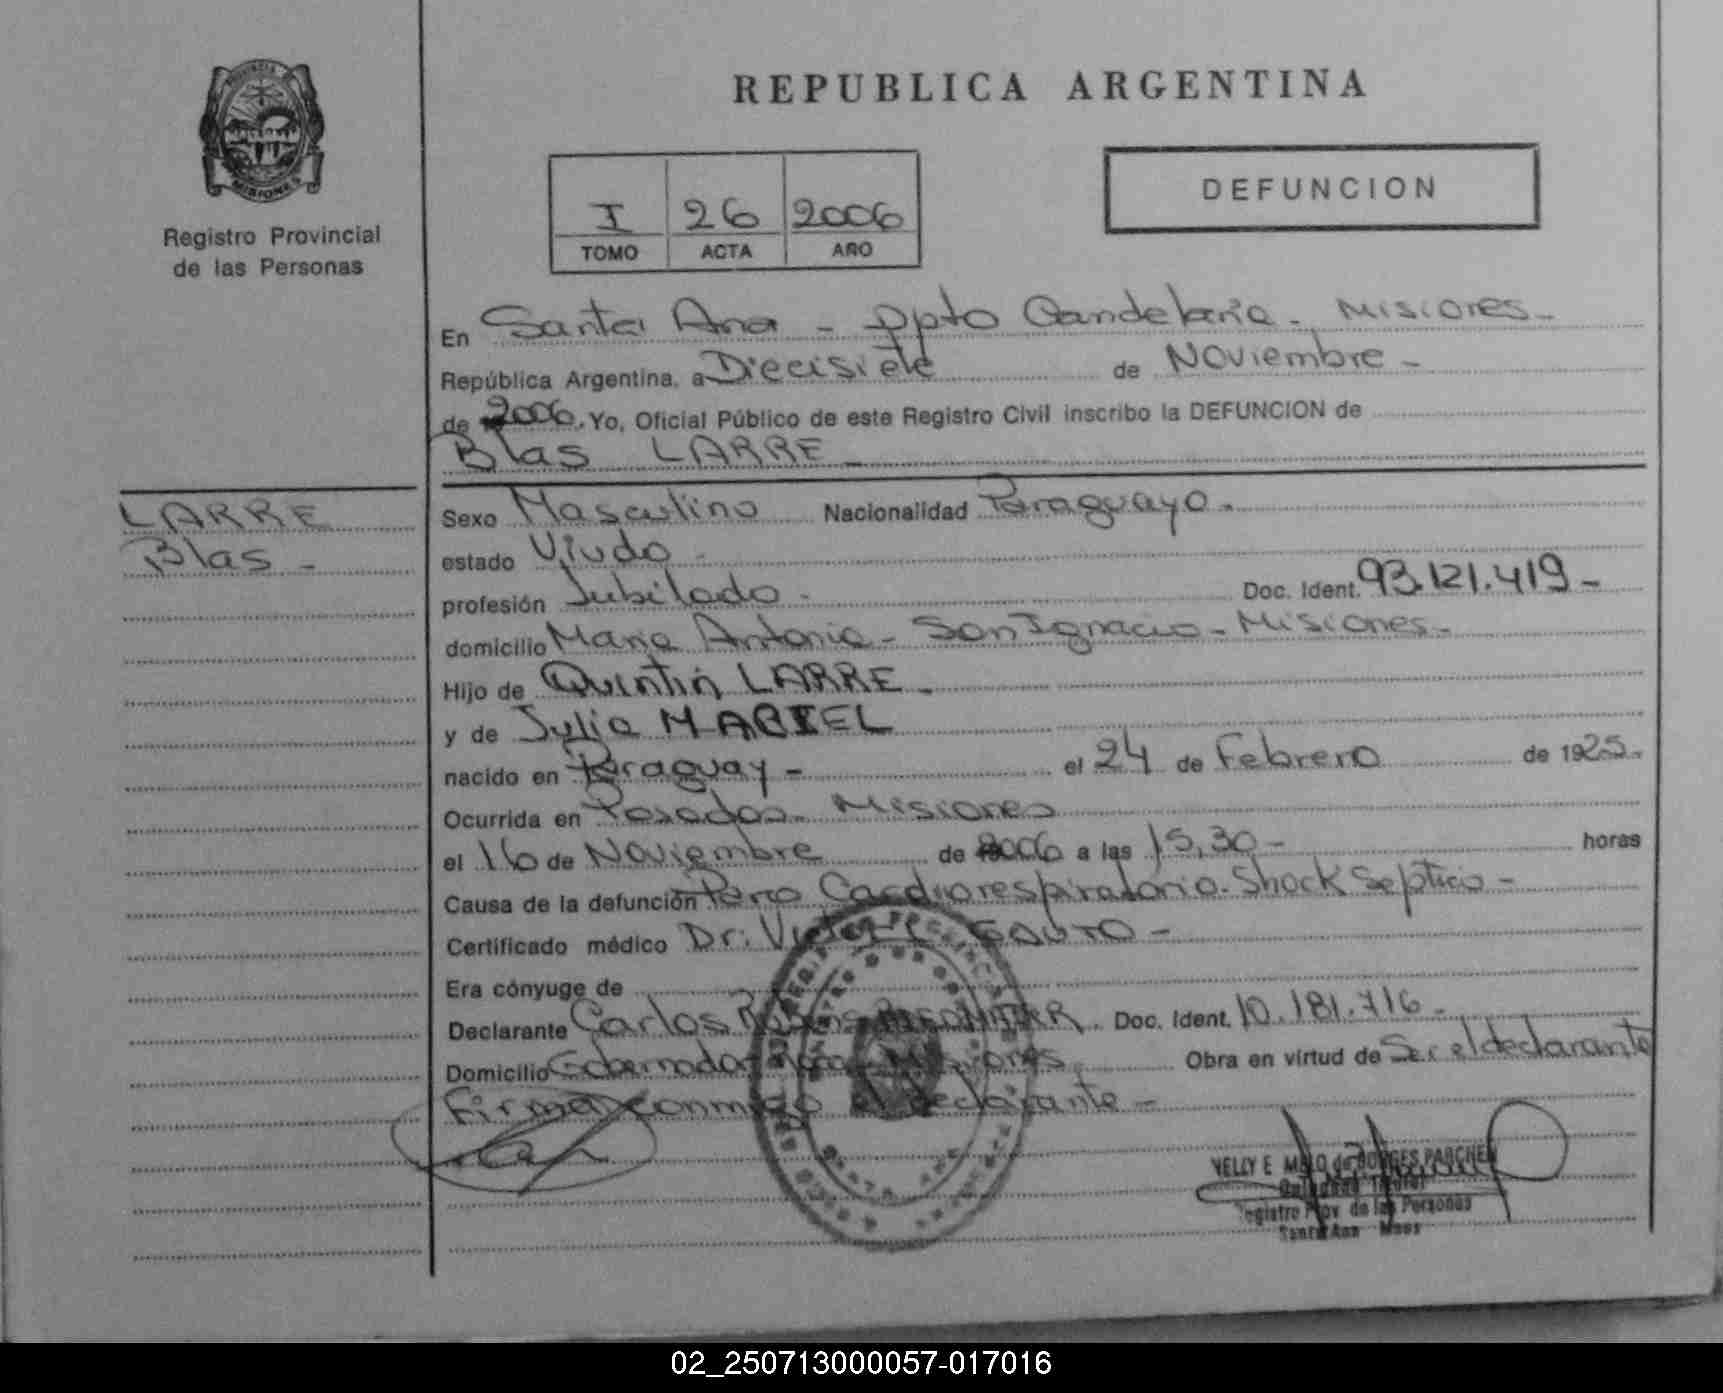 PROVINCIA DE
MISIONES
Registro Provincial
de las Personas
REPUBLICA ARGENTINA
I 26 2006
TOMO ACTA AÑO
DEFUNCION
En Santa Ana - Dpto Candelaria - Misiones -
República Argentina, a Diecisiete de Noviembre -
de 2006. Yo, Oficial Público de este Registro Civil inscribo la DEFUNCION de
Blas LARRE -
LARRE
Blas -
Sexo Masculino Nacionalidad Paraguayo -
estado Viudo -
profesión Jubilado - Doc. Ident. 93.121.419 -
domicilio Maria Antonia - San Ignacio - Misiones -
Hijo de Quintin LARRE -
y de Julia MARIEL
nacido en Paraguay - el 24 de Febrero de 1925 -
Ocurrida en Posadas - Misiones
el 16 de Noviembre de 2006 a las 15,30 - horas
Causa de la defunción Paro Cardiorespiratorio - Shock Septico -
Certificado médico Dr: Victor SOUTO -
Era cónyuge de
Declarante Carlos Doc. Ident. 10.181.716 -
Domicilio Gobernador Roca Misiones Obra en virtud de Ser el declarante
Firma conmigo el declarante -
SANTA ANA
NELLY E. MELO de BORGES PARCHEN
Oficial Titular
Registro Prov. de las Personas
Santa Ana Mnes
02_250713000057-017016